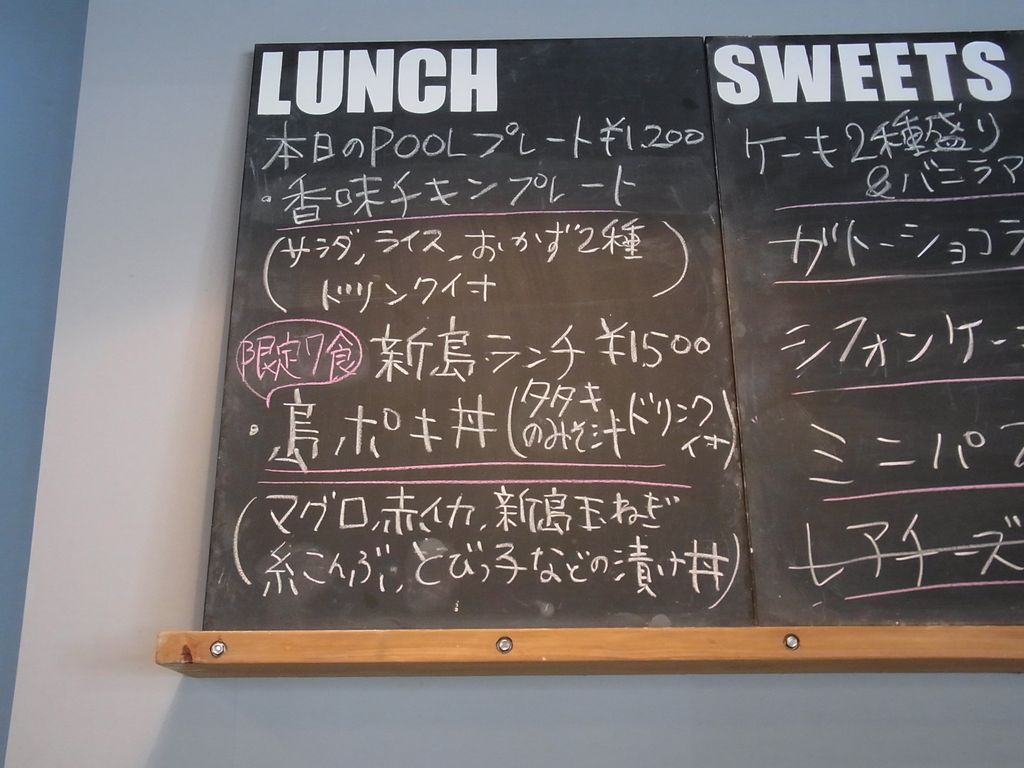 LUNCH
本日のPOOLプレート¥1,200
・香味チキンプレート
(サラダ,ライス,おかず2種
ドリンク付)
限定7食
新島ランチ ¥1500
・島ポキ丼(タタキのみそ汁 ドリンク付)
(マグロ,赤イカ,新島玉ねぎ
糸こんぶ,とびっ子などの漬け丼)
SWEETS
ケーキ2種盛り
&バニラア
ガトーショコラ
シフォンケー
ミニパフ
レアチーズ